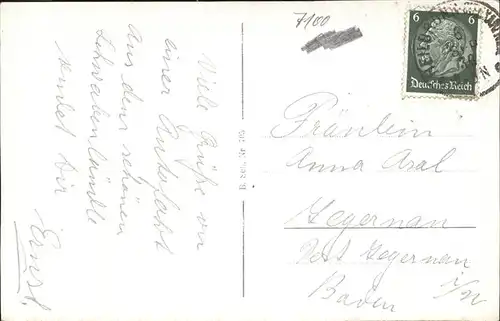 Viele Grüße von
einer Autofahrt
aus dem schönen
Schwabenländle
sendet Dir
Ernst.
7100
6 6
Deutsches Reich
Fräulein
Anna Asal
Tegernau
Post Tegernau
i/W
Baden